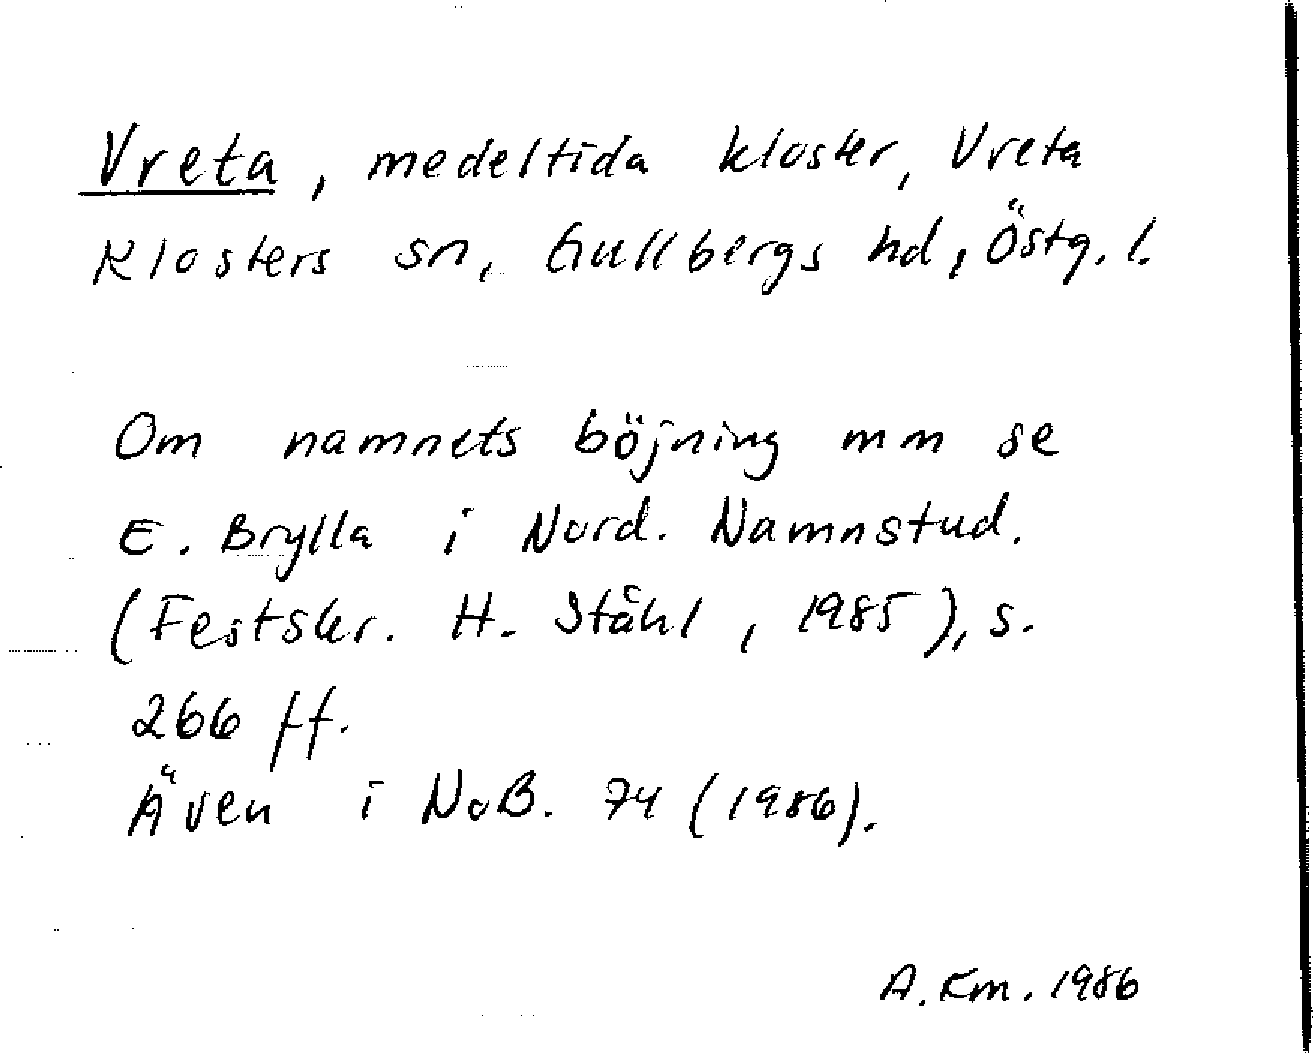 Vreta, medeltida kloster, Vreta
Klosters sn, Gullbergs hd, Östg. l.
Om namnets böjning mm se
E. Brylla i Nord. Namnstud.
(Festskr. H. Ståhl, 1985), s.
266 ff.
Även i NoB. 74 (1986).
A. Km. 1986